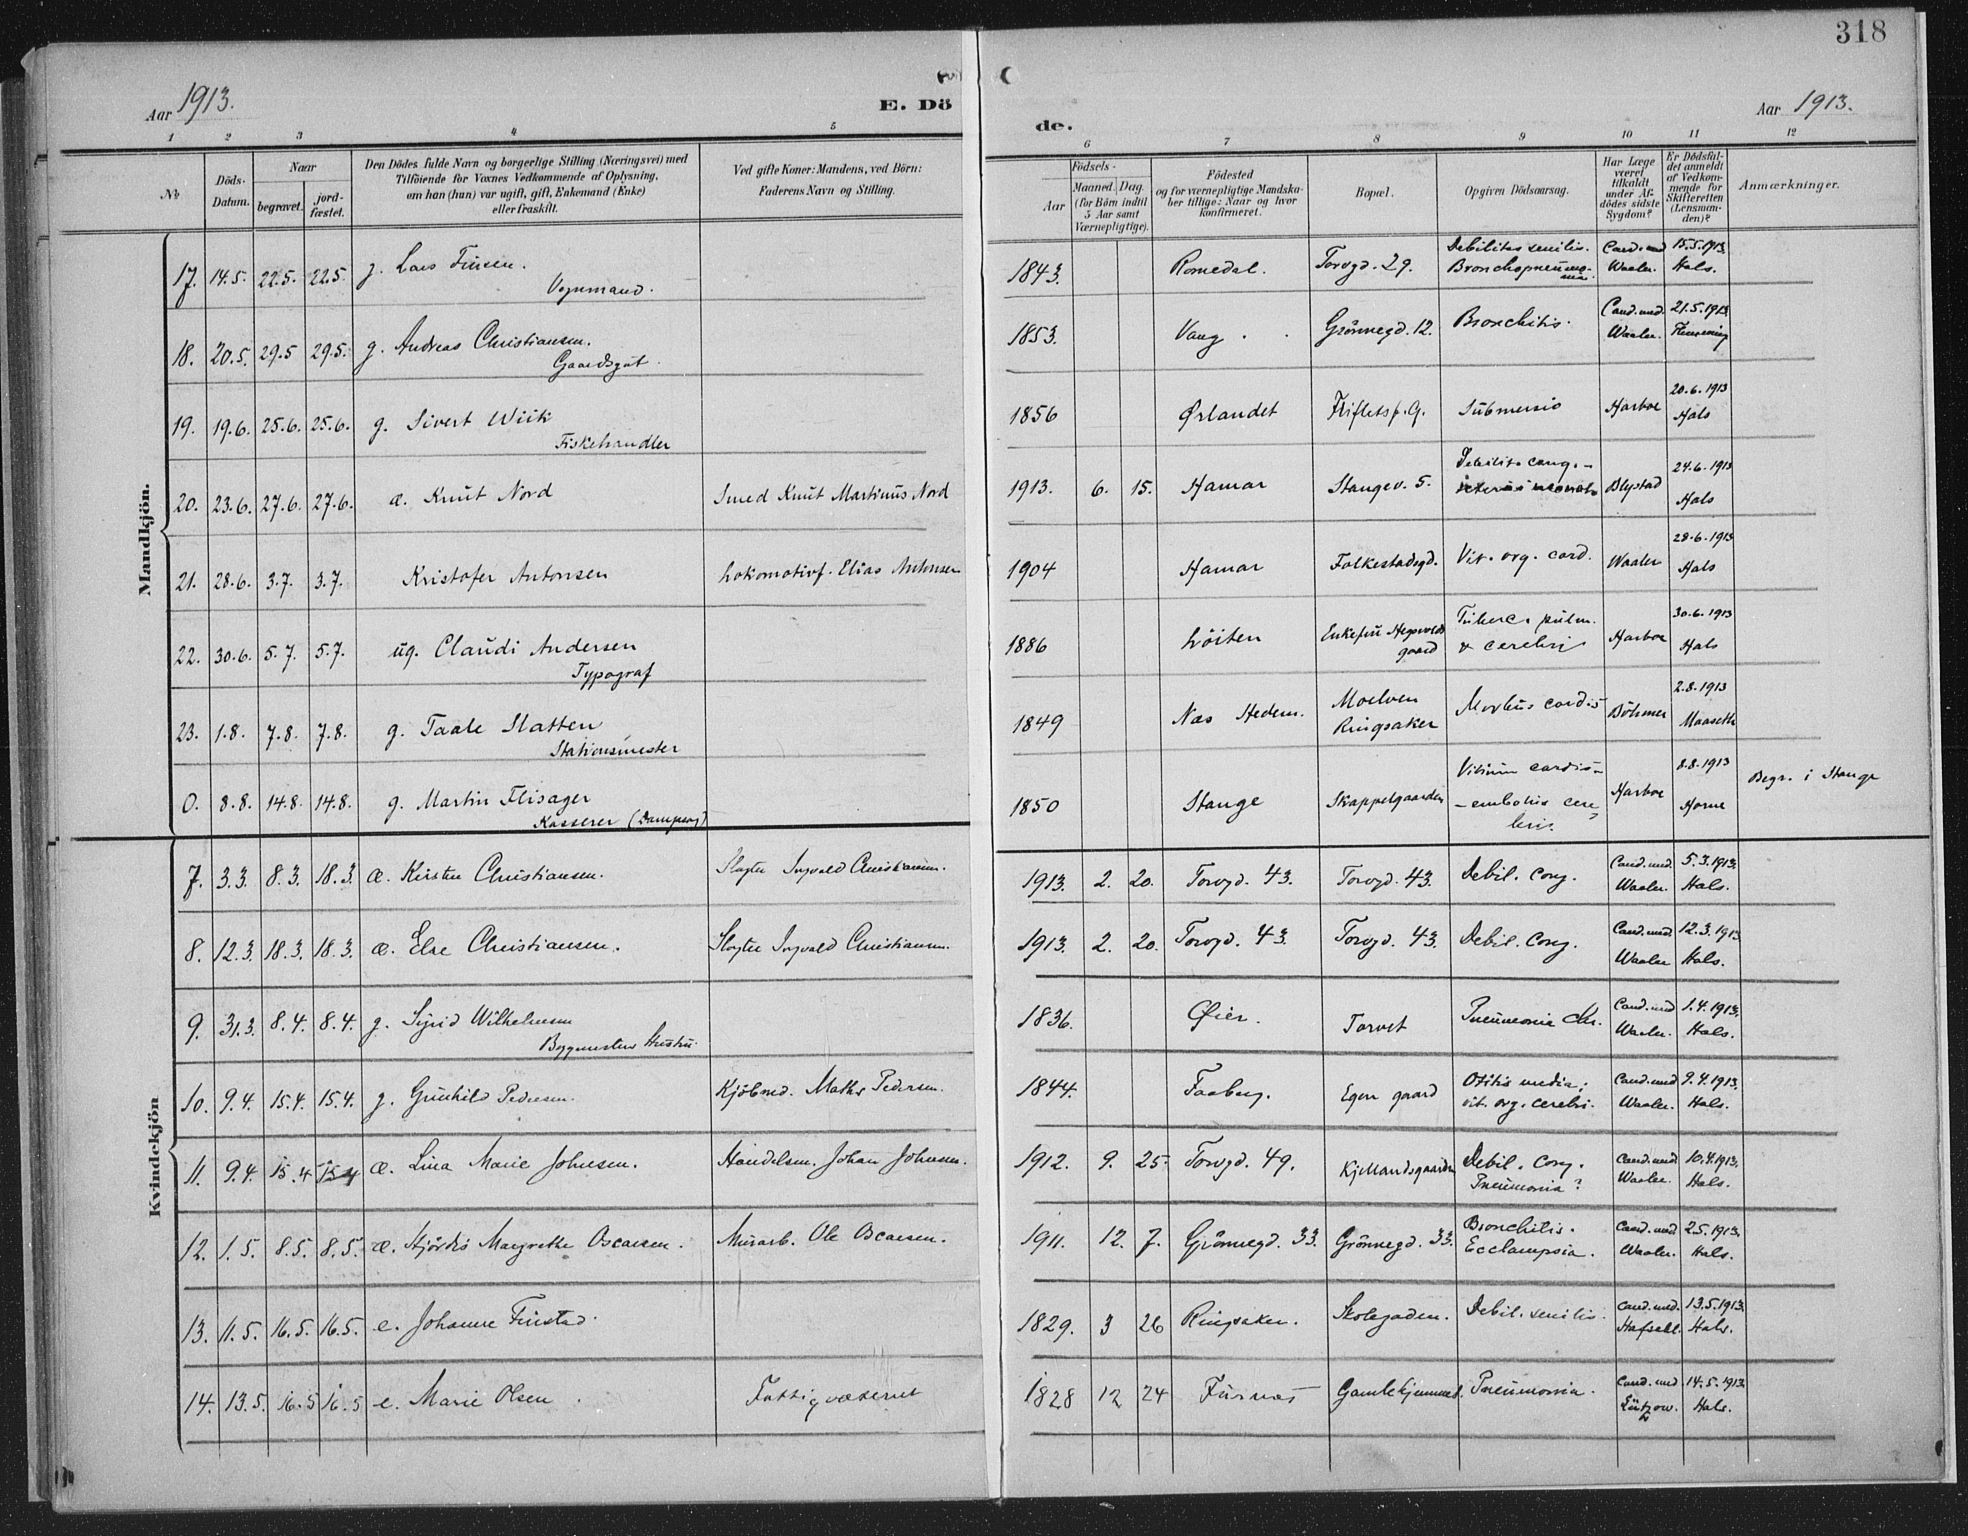 318
Aar 1913.
E. Dö
de.
Aar 1913.
1 2 3 4 5 6 7 8 9 10 11 12
No
Döds-Datum.
Naar
begravet.
jord-fæstet.
Den Dödes fulde Navn og borgerlige Stilling (Næringsvei) med
Tilföiende for Voxnes Vedkommende af Oplysning,
om han (hun) var ugift, gift, Enkemand (Enke)
eller fraskilt.
Ved gifte Koner: Mandens, ved Börn:
Faderens Navn og Stilling.
Födsels-
Aar
Maaned. Dag.
(for Börn indtil
5 Aar samt
Værnepligtige).
Födested
og for værnepligtige Mandska-
ber tillige: Naar og hvor
konfirmeret.
Bopæl.
Opgiven Dödsaarsag.
Har Læge
været
tilkaldt
under Af-
dödes sidste
Sygdom?
Er Dödsfal-
det anmeldt
af Vedkom-
mende for
Skifteretten
(Lensman-
den)?
Anmærkninger.
Mandkjön.
17. 14.5. 22.5. 22.5. g. Lars Finsen. Vognmand. 1843. Romedal. Torvgd. 29. Debilitas senilis. Bronchopneumonia. Cand. med Waaler. 15.5.1913. Hals.
18. 20.5. 29.5 29.5. g. Andreas Christiansen. Gaardsgut. 1853. Vang. Grönnegd. 12. Bronchitis. Cand. med Waaler. 21.5.1913 Flemming
19. 19.6. 25.6. 25.6. g. Sivert Wiik Fiskehandler 1856 Ørlandet Submersio Harboe 20.6.1913 Hals
20. 23.6. 27.6. 27.6. æ. Knut Nord Smed Knut Martinus Nord 1913. 6. 15. Hamar Stangev. 5. Debilit. cong. Blystad 24.6.1913 Hals
21. 28.6. 3.7. 3.7. Kristofer Antonsen Lokomotivf. Elias Antonsen 1904 Hamar Folkestadgd. Vit. org. cord. Waaler 28.6.1913 Hals
22. 30.6. 5.7. 5.7. ug. Claudi Andersen Typograf 1886 Löiten Enkefru gaard Tuberc. pulm. & cerebri Harboe 30.6.1913 Hals
23. 1.8. 7.8. 7.8. g. Taale Slatten Stationsmester 1849 Næs Hedem. Moelven Ringsaker Morbus cordis Böhmer 2.8.1913 Maaseth
0. 8.8. 14.8. 14.8. g. Martin Flisager Kasserer (Dampsag) 1850 Stange Skappelgaarden Vitium cordis - embolus cerebri. Harboe 8.8.1913 Horne Begr. i Stange
Kvindekjön
7. 3.3. 8.3. 18.3. æ. Kirsten Christiansen. Slagter Ingvald Christiansen. 1913. 2. 20. Torvgd. 43. Torvgd. 43. Debil. cong. Cand. med. Waaler. 5.3.1913. Hals.
8. 12.3. 18.3. 18.3. æ. Else Christiansen. Slagter Ingvald Christiansen. 1913. 2. 20. Torvgd. 43. Torvgd. 43. Debil. Cong. Cand. med. Waaler 12.3.1913. Hals.
9. 31.3. 8.4. 8.4. g. Sigrid Wilhelmsen Byggmesters Hustru. 1836. Øier. Torvet Pneumonia chr. Cand. med Waaler. 1.4.1913. Hals.
10. 9.4. 15.4. 15.4. g. Gunhild Pedersen. Kjöbmd. Maths Pedersen. 1844. Faaberg. Egen gaard Otitis media; vit. org. cerebri. Cand. med Waaler. 9.4.1913. Hals.
11. 9.4. 15.4 15.4 æ. Lina Marie Johnsen. Handelsm. Johan Johnsen. 1912. 9. 25. Torvgd. 49. Kjellandsgaarden Debil. Cong. Pneumonia? Cand. med Waaler. 10.4.1913. Hals.
12. 1.5. 8.5. 8.5. æ. Hjördis Margrethe Oscarsen. Murarb. Ole Oscarsen. 1911. 12. 7. Grönnegd. 33. Grönnegd. 33. Bronchitis. Ecclampsia. Cand. med Waaler. 2.5.1913. Hals.
13. 11.5. 16.5. 16.5. e. Johanne Finstad. 1829. 3 26 Ringsaker. Skolegaden. Debil. senilis. Cand. med. Hafsell. 13.5.1913. Hals.
14. 13.5. 16.5 16.5 e. Marie Olsen. Fattigvæsenet 1828 12 24 Furnæs Gamlehjemmet. Pneumonia. Cand. med Lützow. 14.5.1913. Hals.